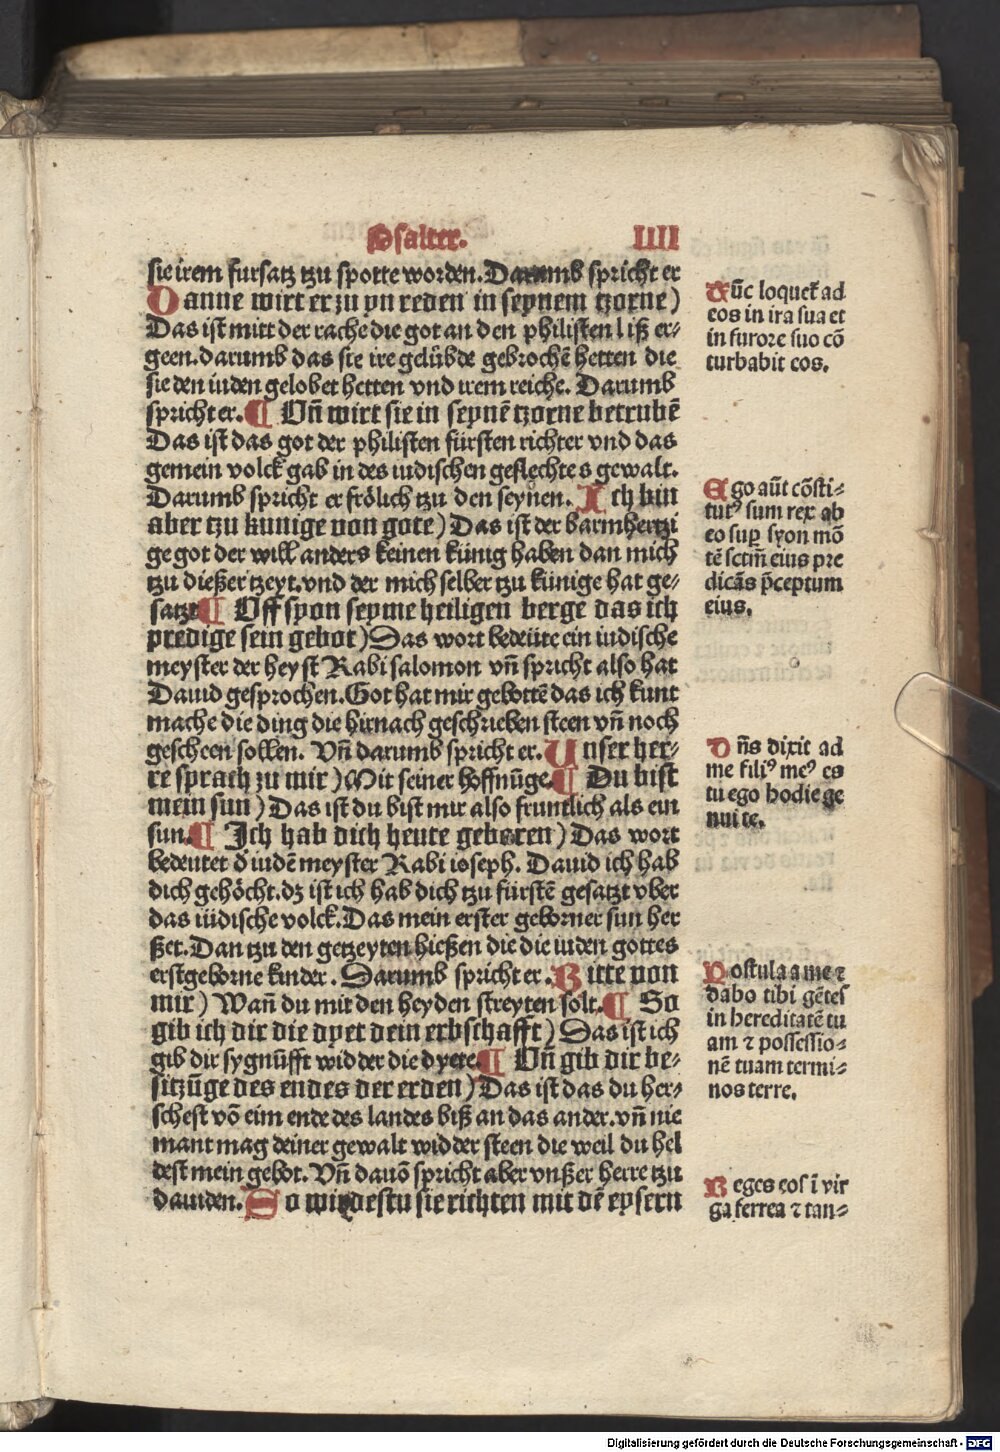 Psalter. IIII
sie irem fursatz tzu spotte worden. Darumb spricht er
Danne wirt er zu yn reden in seynem tzorne)
Das ist mitt der rache die got an den philisten liß er⸗
geen. darumb das sie ire gelübde gebrochē hetten die
sie den iuden gelobet hetten vnd irem reiche. Darumb
spricht er. ¶ Vñ wirt sie in seynē tzorne betrubē
Das ist das got der philisten fürsten richter vnd das
gemein volck gab in des iudischen geslechtes gewalt.
Darumb spricht er frölich tzu den seynen. Ich bin
aber tzu kunige von gote) Das ist der barmhertzi
ge got der will anders keinen künig haben dan mich
tzu dießer tzeyt. vnd der mich selber tzu künige hat ge⸗
satzt ¶ Vff syon seyme heiligen berge das ich
predige sein gebot) Das wort bedeüte ein iudische
meyster der heyst Rabi salomon vñ spricht also hat
Dauid gesprochen. Got hat mir gebottē das ich kunt
mache die ding die hirnach geschrieben steen vñ noch
gescheen sollen. Vñ darumb spricht er. Unser her⸗
re sprach zu mir) Mit seiner hoffnūge. ¶ Du bist
mein sun) Das ist du bist mir also fruntlich als ein
sun. ¶ Ich hab dich heute geboren) Das wort
bedeutet ď iudē meyster Rabi ioseph. Dauid ich hab
dich gehöcht. dz ist ich hab dich tzu fürstē gesatzt vber
das iüdische volck. Das mein erster geborner sun her
ßet. Dan tzu den getzeyten hießen die die iuden gottes
erstgeborne kinder. Darumb spricht er. Bitte von
mir) Wañ du mir den heyden streyten solt. ¶ So
gib ich dir die dyet dein erbschafft) Das ist ich
gib dir sygnüfft widder die dyete. ¶ Vñ gib dir be⸗
sitzūge des endes der erden) Das ist das du her⸗
schest vō eim ende des landes biß an das ander. vñ nie
mant mag deiner gewalt widder steen die weil du hel
dest mein gebot. Vñ dauō spricht aber vnßer herre tzu
dauiden. So wirdestu sie richten mit dē eysern
Tūc loquet̄ ad
eos in ira sua et
in furore suo cō
turbabit eos.
Ego aūt cōsti⸗
tutꝰ sum rex ab
eo suꝑ syon mō
tē sctm̄ eius pre
dicās p̄ceptum
eius.
Dñs dixit ad
me filiꝰ meꝰ es
tu ego hodie ge
nui te.
Postula a me ⁊
dabo tibi gētes
in hereditatē tu
am ⁊ possessio⸗
nē tuam termi⸗
nos terre.
Reges eos ī vir
ga ferrea ⁊ tan⸗
Digitalisierung gefördert durch die Deutsche Forschungsgemeinschaft - DFG